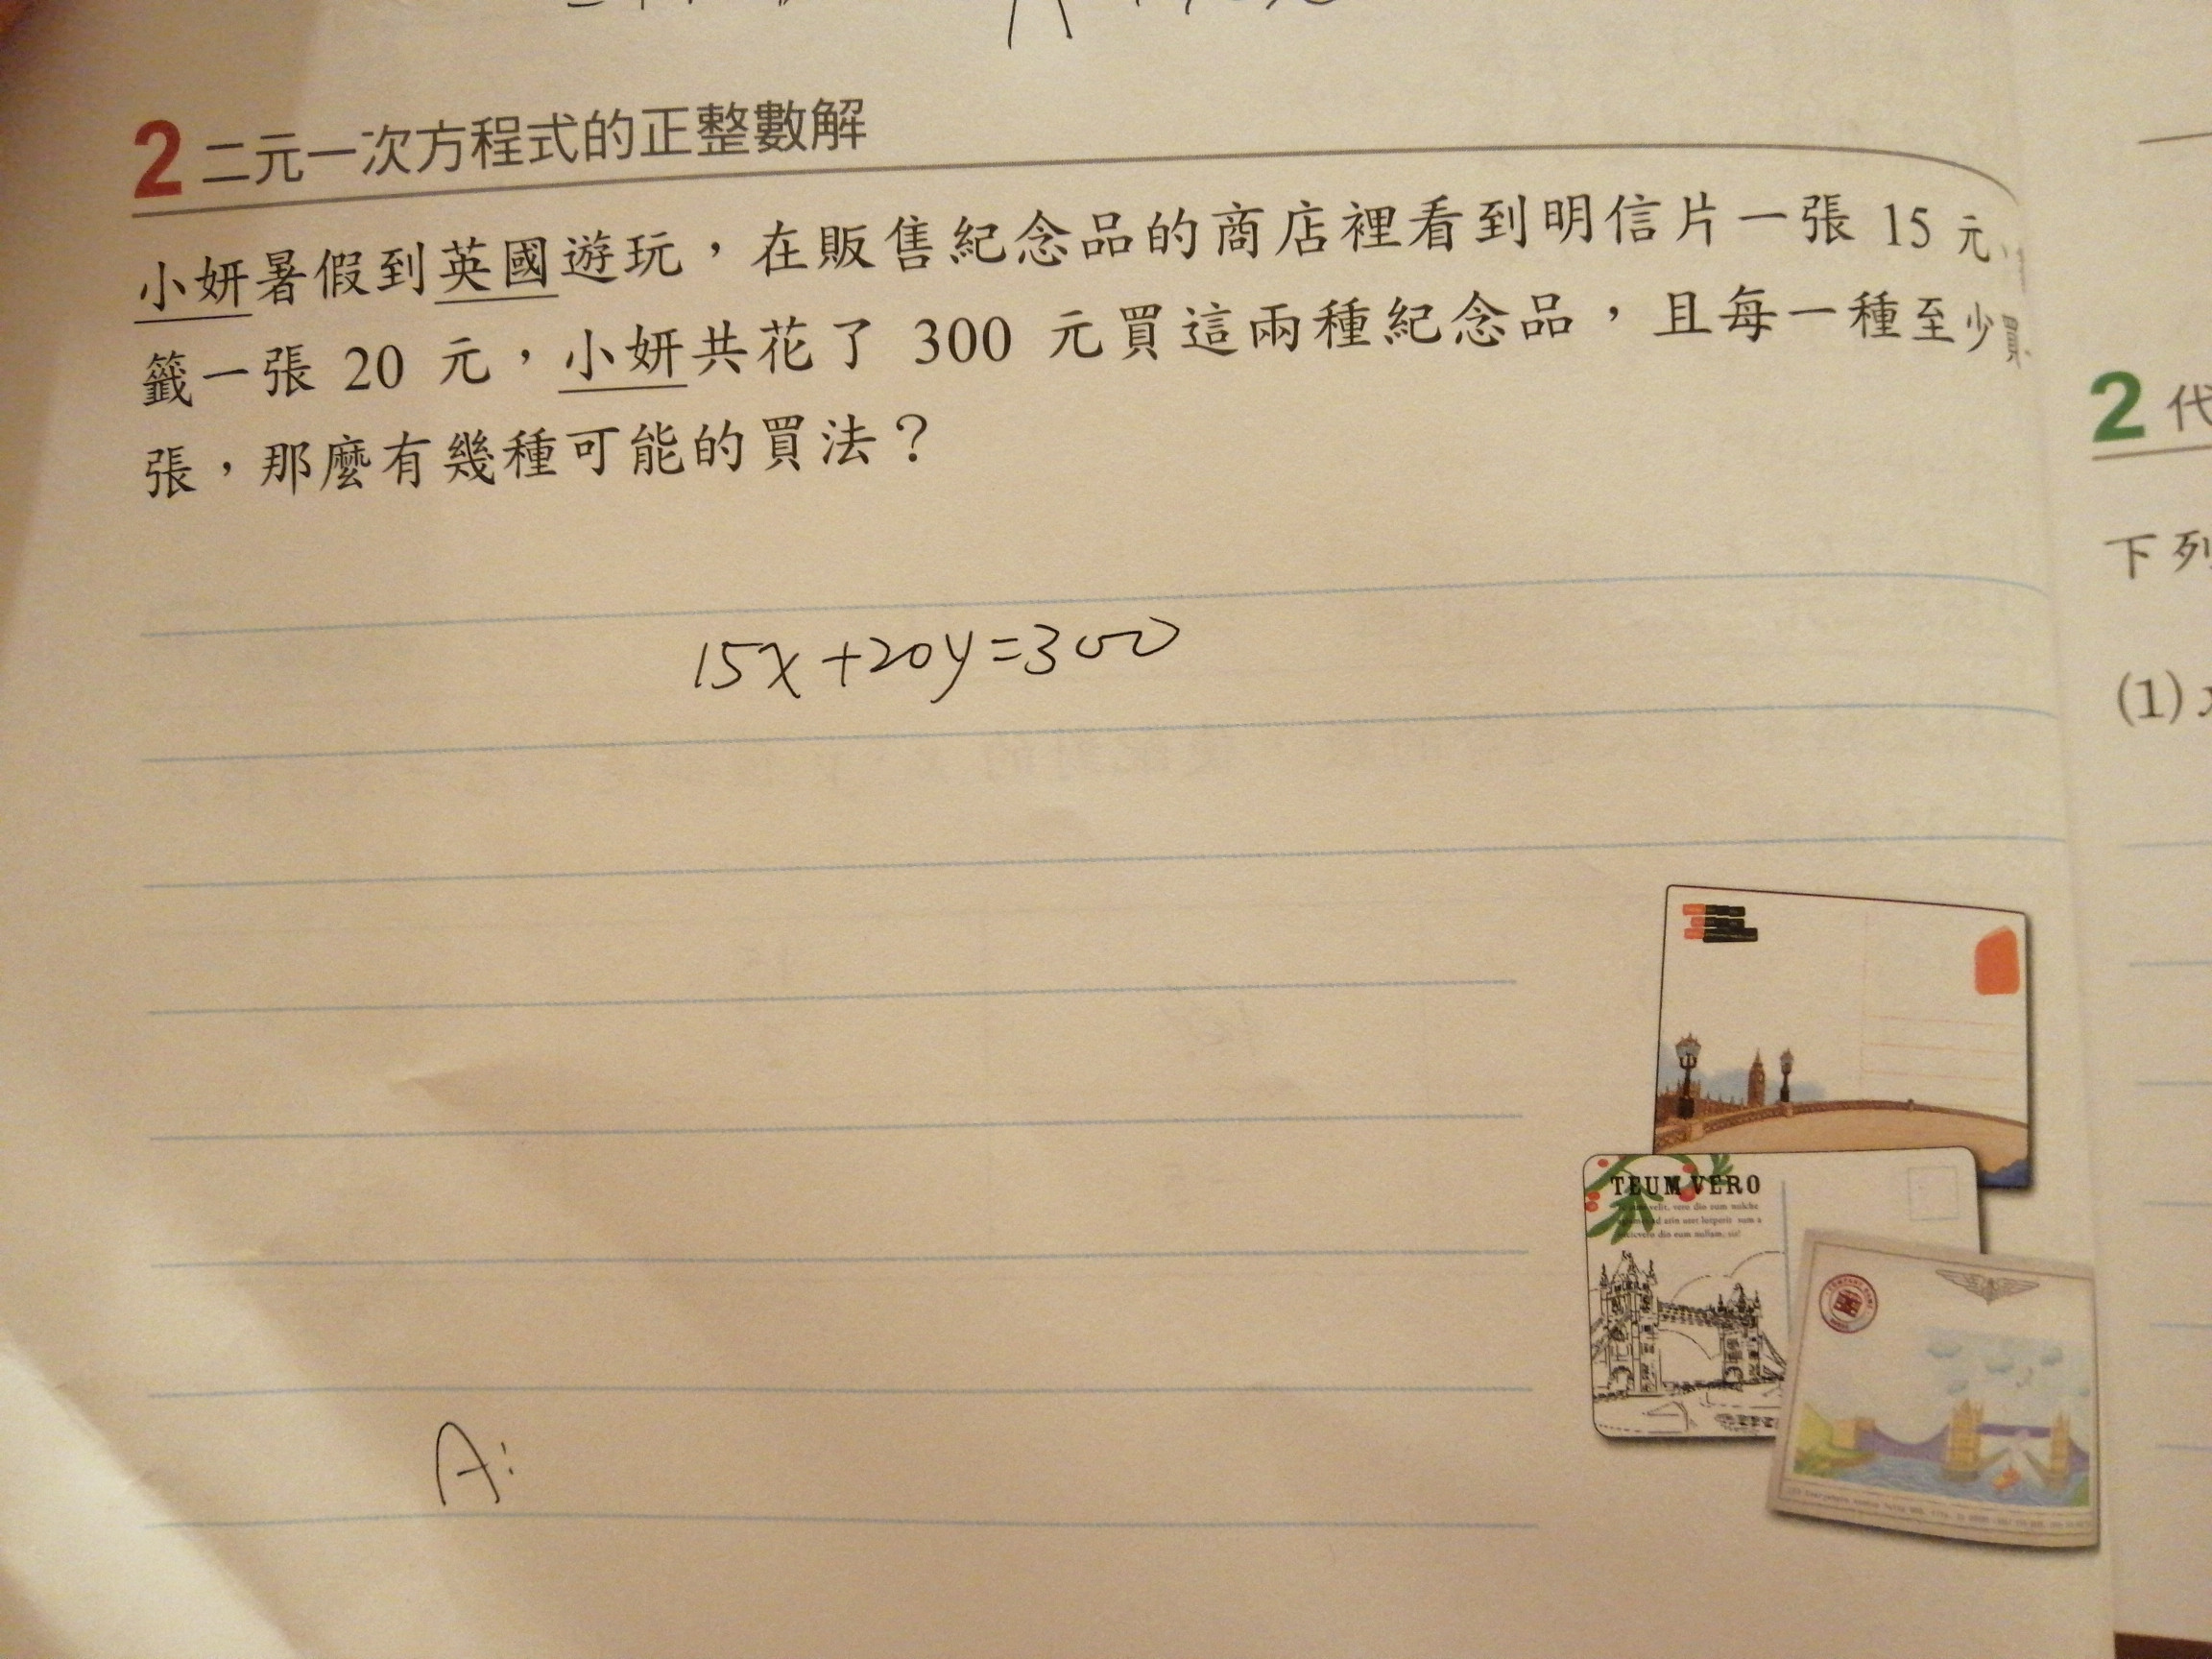 2 二元一次方程式的正整數解
小妍暑假到英國遊玩，在販售紀念品的商店裡看到明信片一張 15 元、
籤一張 20 元，小妍共花了 300 元買這兩種紀念品，且每一種至少買
張，那麼有幾種可能的買法？
15x+20y=300
A:
TEUM VERO
2 代
下列
(1)